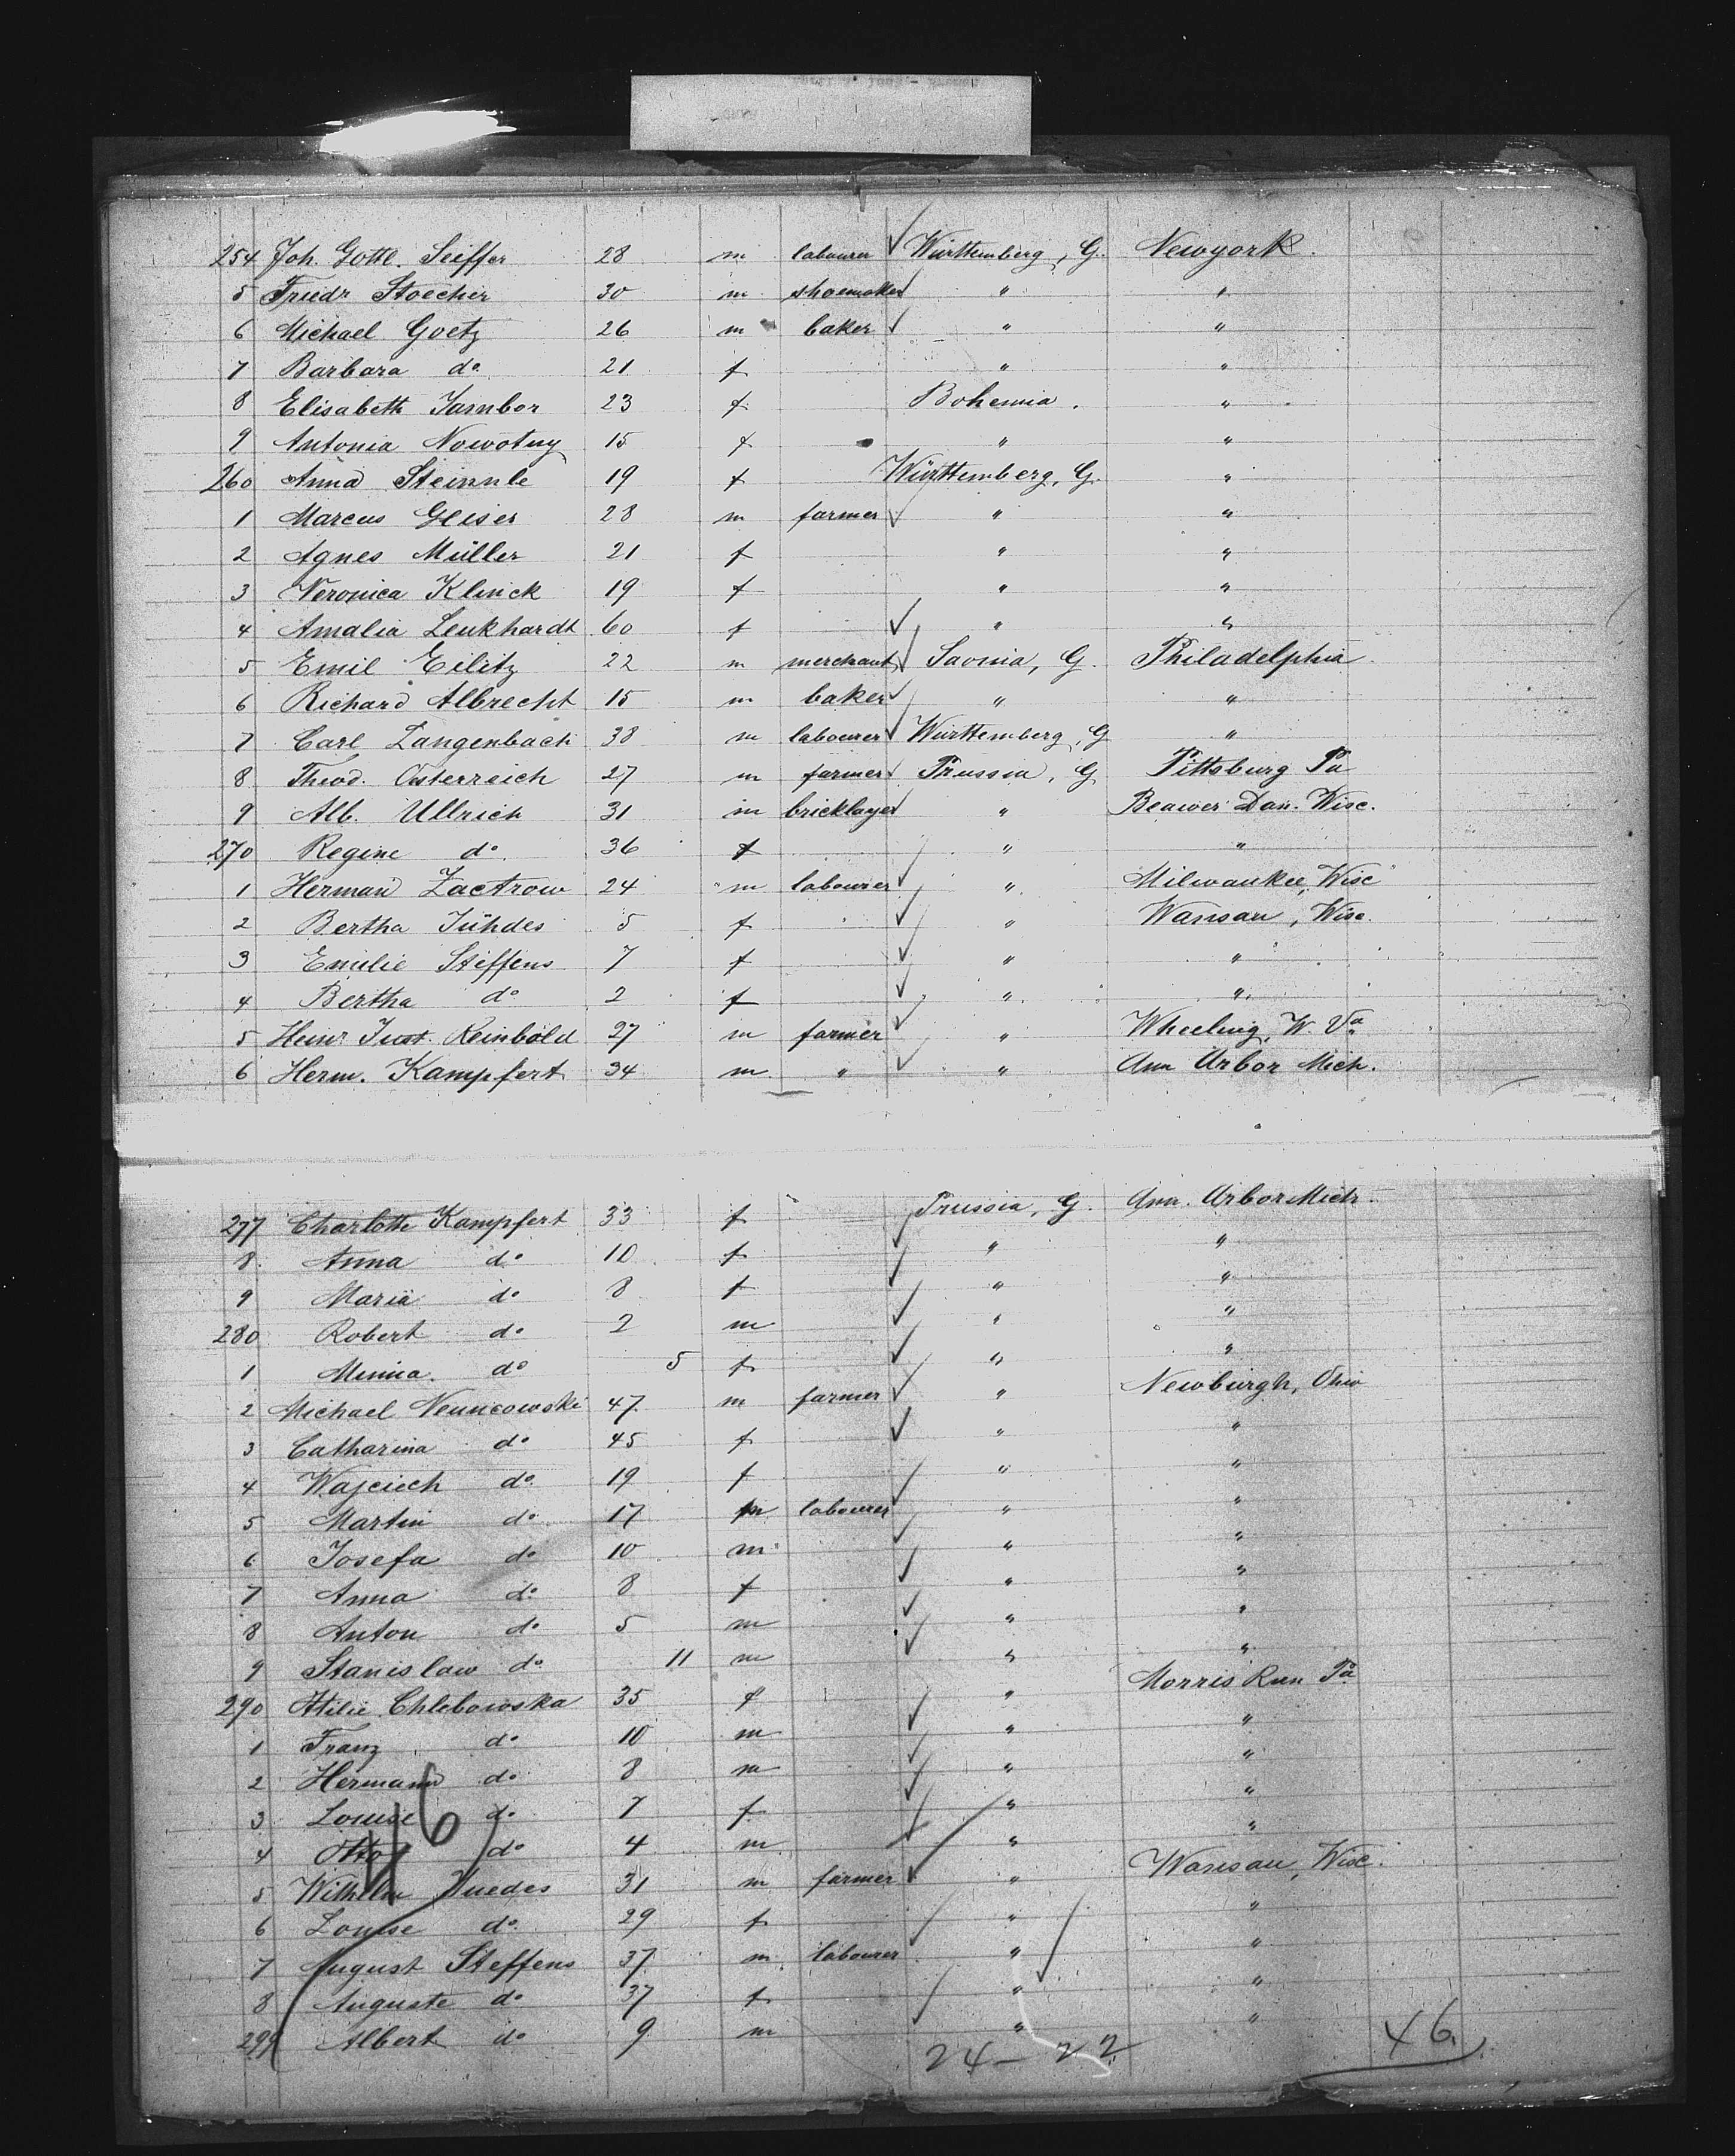 254 Joh. Gottl. Seiffer 28 m labourer Württemberg, G. Newyork.
5 Friedr Stoecher 30 m shoemaker " "
6 Michael Goetz 26 m baker " "
7 Barbara do 21 f " "
8 Elisabeth Jambor 23 f Bohemia. "
9 Antonia Nowotny 15 f " "
260 Anna Steinnle 19 f Württemberg, G. "
1 Marcus Geiser 28 m farmer " "
2 Agnes Müller 21 f " "
3 Veronica Klinck 19 f " "
4 Amalia Leukhardt 60 f " "
5 Emil Eilitz 22 m merchant Saxonia, G. Philadelphia
6 Richard Albrecht 15 m baker " "
7 Carl Langenbach 38 m labourer Württemberg, G "
8 Theod. Österreich 27 m farmer Prussia, G Pittsburg Pa
9 Alb. Ullrich 31 m bricklayer " Beawer Dan. Wisc.
270 Regine do 36 f " "
1 Herman Zactrow 24 m labourer " Milwaukee, Wisc
2 Bertha Jühdes 5 f " Wansau, Wisc.
3 Emilie Steffens 7 f " "
4 Bertha do 2 f " "
5 Heinr Just. Reinbold 27 m farmer " Wheeling, W. Va
6 Herm. Kampfert 34 m " " Ann Arbor Mich.
277 Charlotte Kampfert 33 f Prussia, G. Ann. Arbor Mich.
8 Anna do 10 f " "
9 Maria do 8 f " "
280 Robert do 2 m " "
1 Minna do 5 f " "
2 Michael Neuncowski 47 m farmer " Newburgh, Ohio
3 Catharina do 45 f " "
4 Wajciech do 19 f " "
5 Martin do 17 m labourer " "
6 Josefa do 10 m " "
7 Anna do 8 f " "
8 Anton do 5 m " "
9 Stanislaw do 11 m " "
290 Ottilie Chlebowska 35 f " Morris Run Pa
1 Franz do 10 m " "
2 Hermann do 8 m " "
3 Louise do 7 f " "
4 Otto do 4 m " "
5 Wilhelm Juedes 31 m farmer " Wansau, Wisc.
6 Louise do 29 f " "
7 August Steffens 37 m labourer " "
8 Auguste do 37 f " "
299 Albert do 9 m " "
46
24 - 22 46